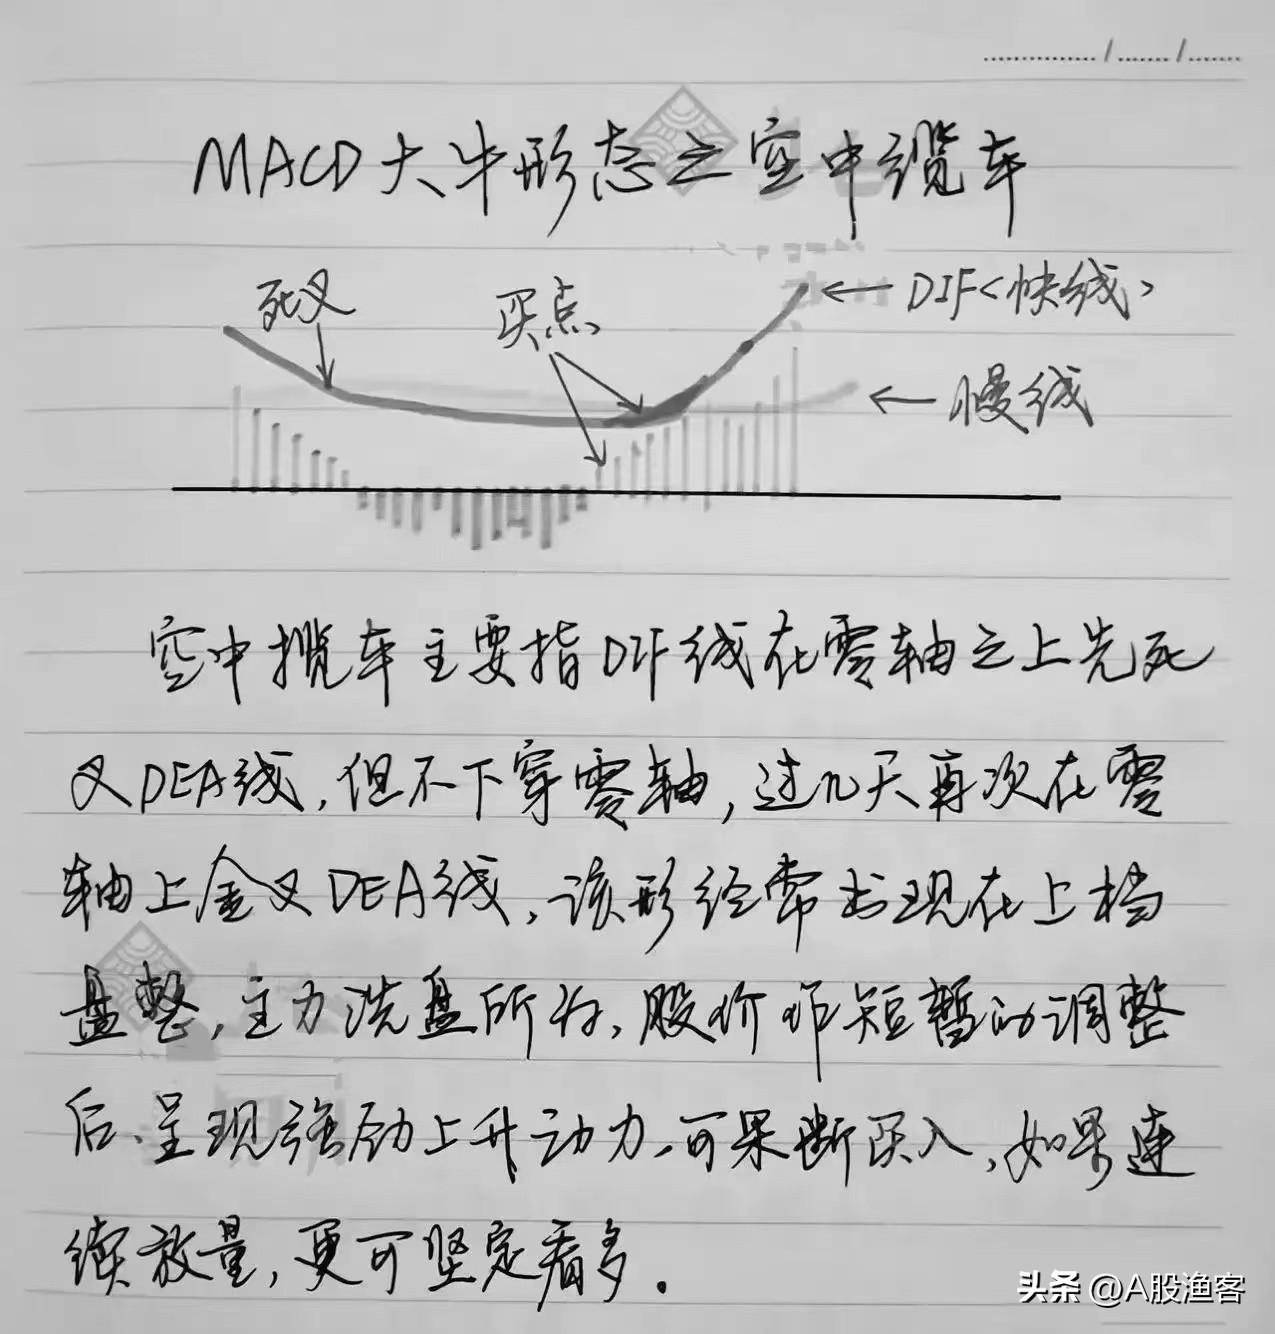 MACD大牛形态之空中缆车
死叉
买点
DIF<快线>
慢线
空中揽车主要指DIF线在零轴之上先死
叉DEA线,但不下穿零轴,过几天再次在零
轴上金叉DEA线,该形经常出现在上档
盘整,主力洗盘所为,股价作短暂的调整
后、呈现强劲上升动力,可果断买入,如果连
续放量,更可坚定看多。
头条 @A股渔客